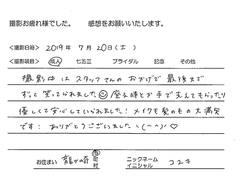 撮影お疲れ様でした。 感想をお願いいたします。
<撮影日時> 2019年 7月 20日(土)
<撮影項目> 成人 七五三 ブライダル 記念 その他
撮影中はスタッフさんのおかげで最後まで
ずっと笑ってられました 座る時とか手で支えてもらったり
優しくて安心していられました!メイクも髪のもの大満足
です!ありがとうございました\(^-^)/♡
お住まい 龍ケ崎 市 町 村 ニックネーム イニシャル コユキ